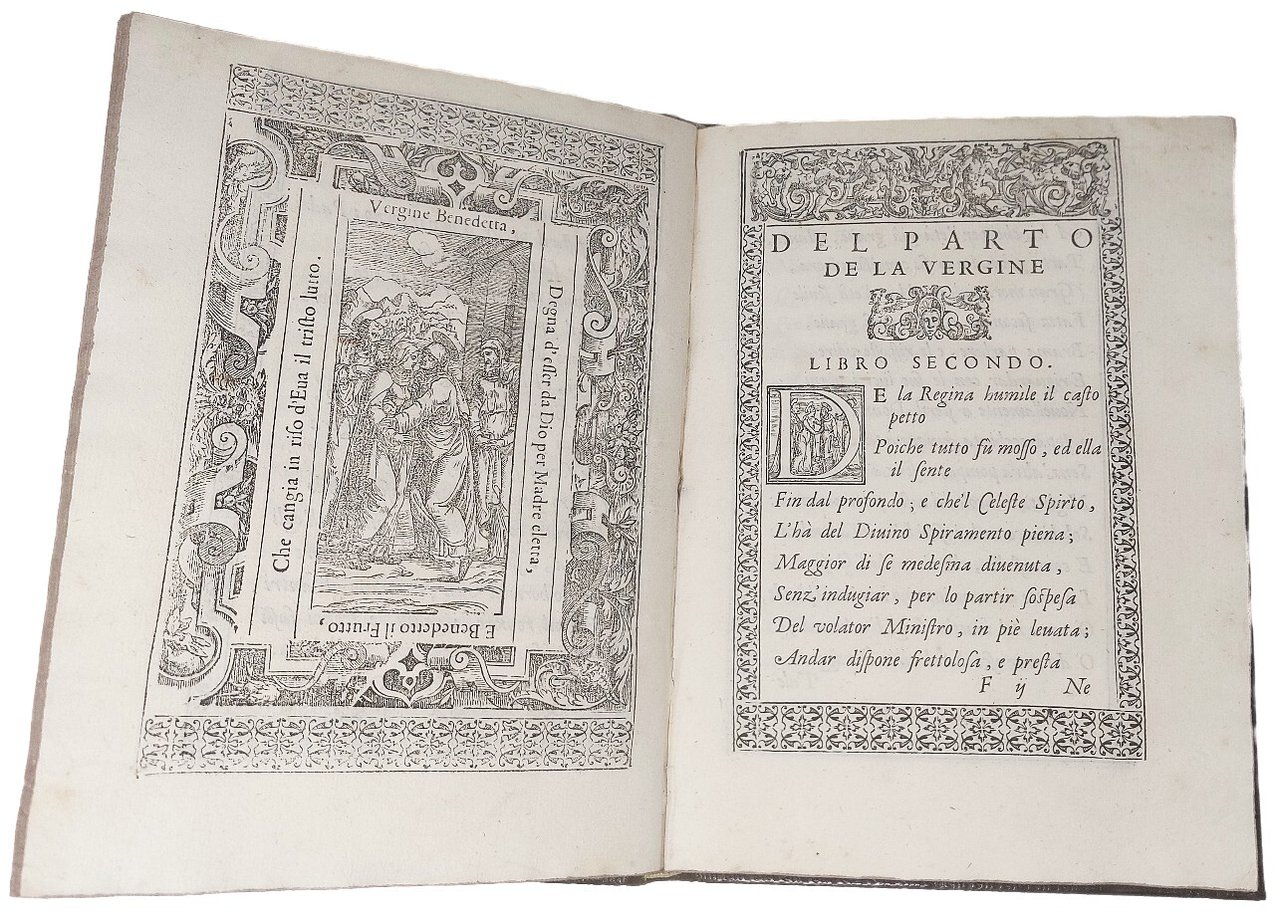 Vergine Benedetta,
Degna d'eſſer da Dio per Madre eletta,
E Benedetto il Frutto,
Che cangia in riſo d'Eua il triſto lutto.
DEL PARTO
DE LA VERGINE
LIBRO SECONDO.
DE la Regina humìle il caſto
petto
Poiche tutto fù moſſo, ed ella
il ſente
Fin dal profondo; e che'l Celeſte Spirto,
L'hà del Diuino Spiramento piena;
Maggior di ſe medeſma diuenuta,
Senz'indugiar, per lo partir ſoſpeſa
Del volator Miniſtro, in piè leuata;
Andar diſpone frettoloſa, e preſta
F ij Ne